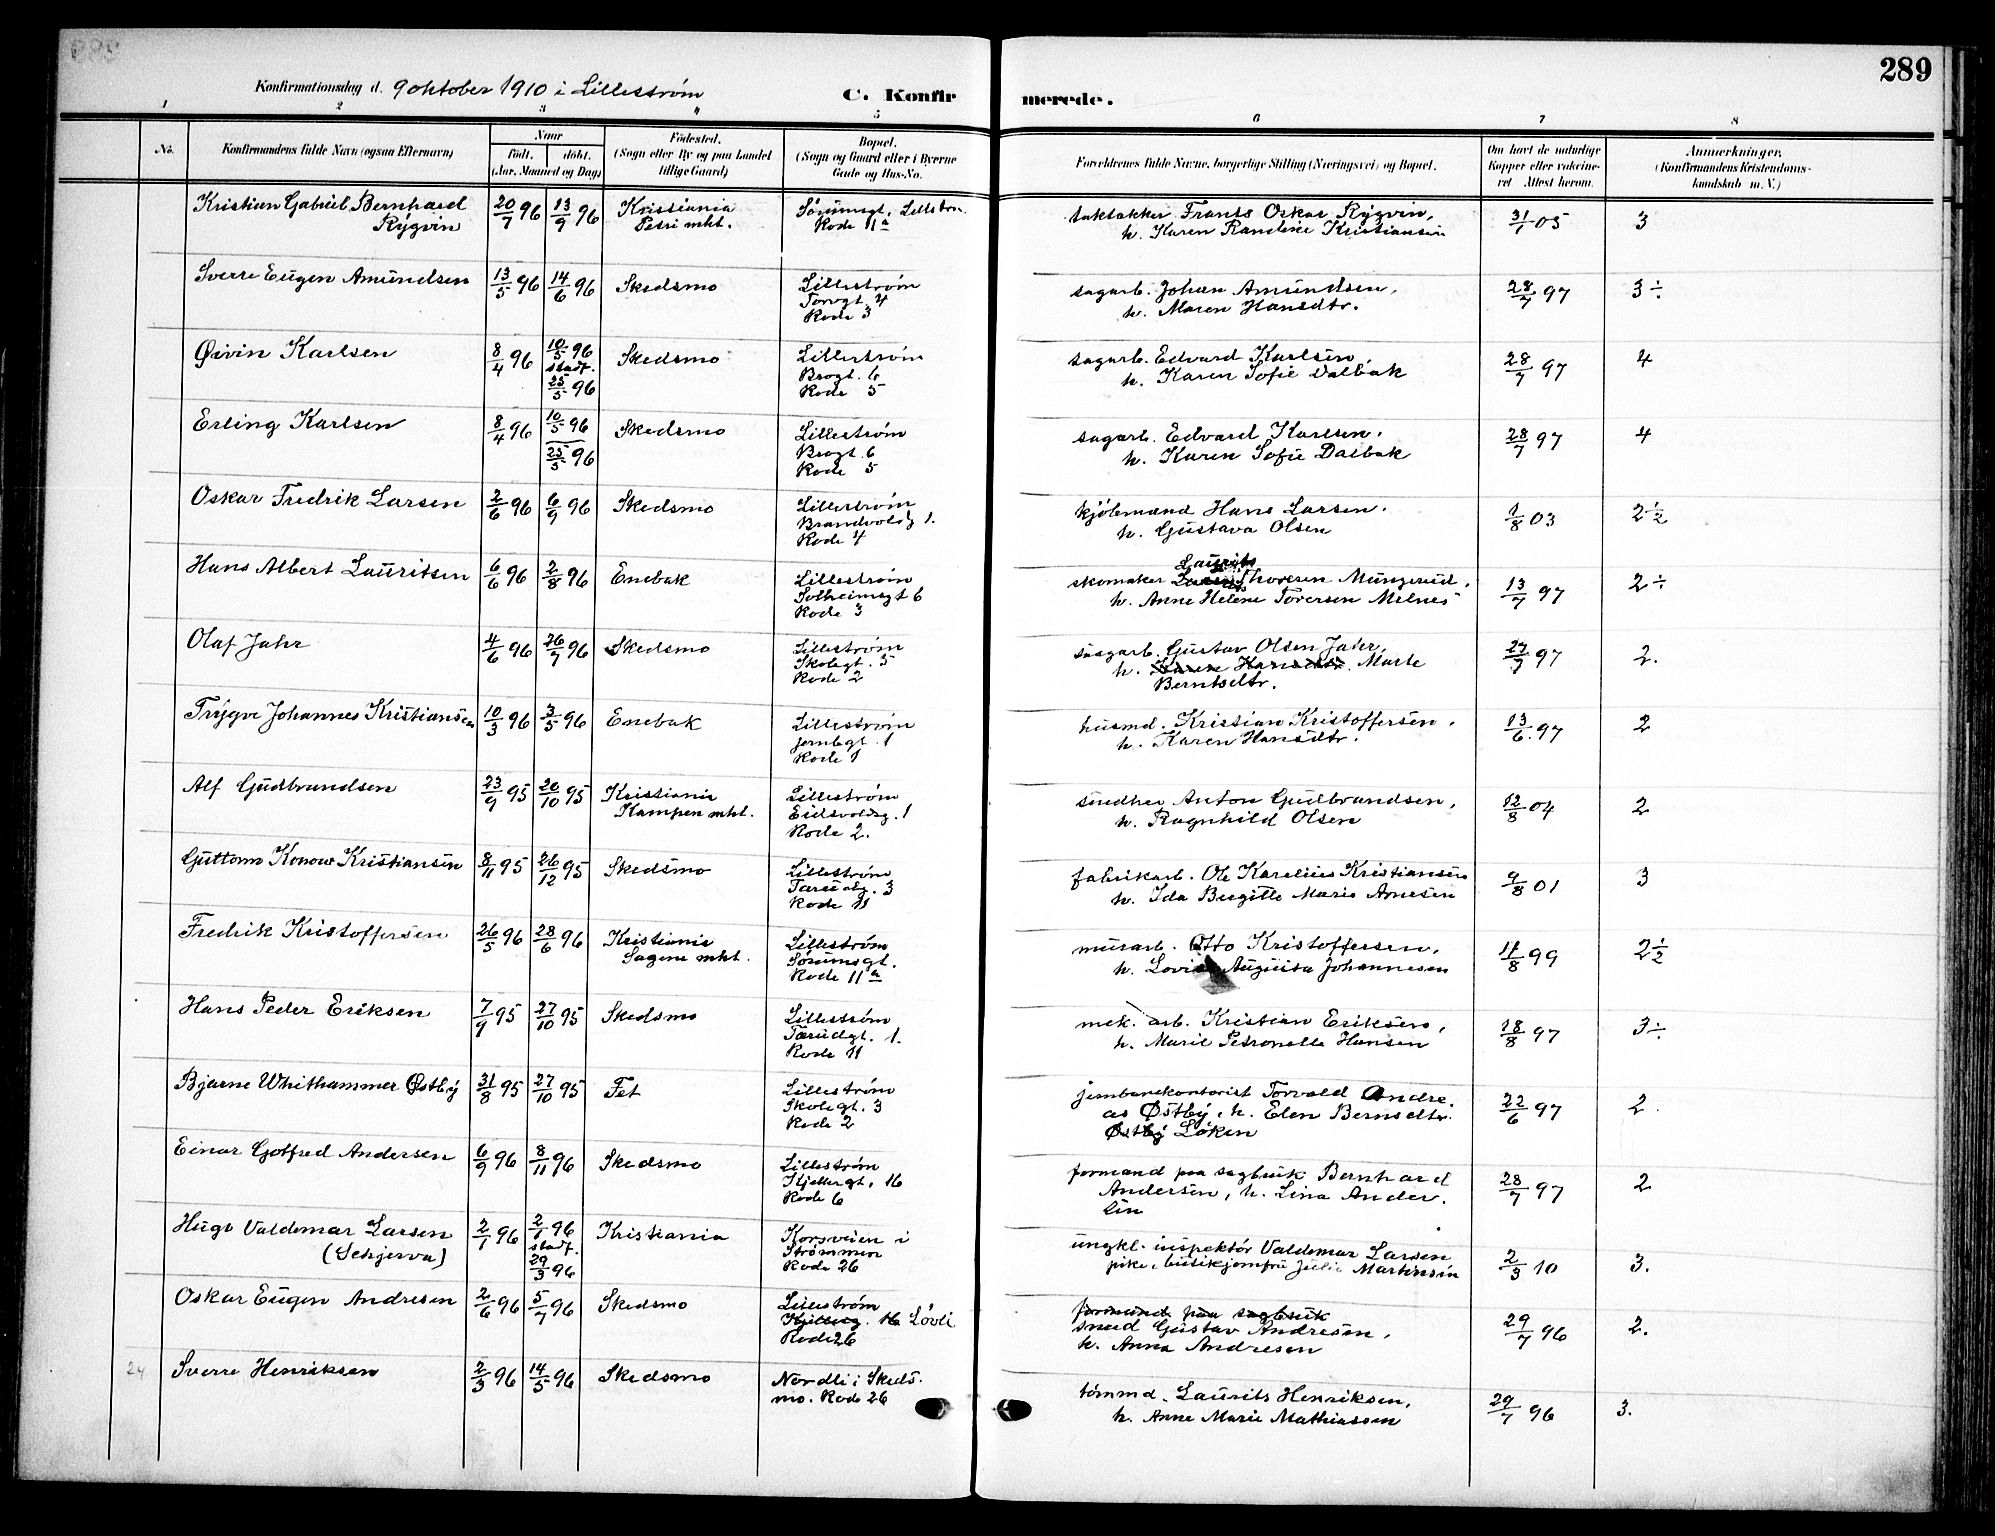 289
Konfirmationsdag d. 9 oktober 1910 i Lillestrøm
C. Konfirmerede.
1 2 3 4 5 6 7 8
No. | Konfirmandens fulde Navn (ogsaa Efternavn) | Naar født. døbt. (Aar, Maaned og Dag) | Fødested. (Sogn eller By og paa Landet tillige Gaard) | Bopæl. (Sogn og Gaard eller i Byerne Gade og Hus-No. | Forældrenes fulde Navne, borgerlige Stilling (Næringsvei) og Bopæl. | Om havt de naturlige Kopper eller vakcineret. Attest herom. | Anmærkninger. (Konfirmandens Kristendomskundskab m. V.)
Kristian Gabriel Bernhard Rygvin | 20/7 96 | 13/9 96 | Kristiania Petri mht. | Sørumsgt. Lillestrøm Rode 11a | taktækker Frants Oskar Rygvin, h. Karen Randine Kristiansen | 31/1 05 | 3
Sverre Eugen Amundsen | 13/5 96 | 14/6 96 | Skedsmo | Lillestrøm Torvgt. 4 Rode 3 | sagarb. Johan Amundsen, h. Maren Hansdtr. | 28/7 97 | 3 ÷
Øivin Karlsen | 8/4 96 | 10/5 96 stadf. 25/5 96 | Skedsmo | Lillestrøm Brogt. 6 Rode 5 | sagarb. Edvard Karlsen, h. Karen Sofie Dalbak | 28/7 97 | 4
Erling Karlsen | 8/4 96 | 10/5 96 25/5 96 | Skedsmo | Lillestrøm Brogt. 6 Rode 5 | sagarb. Edvard Karlsen. h. Karen Sofie Dalbak | 28/7 97 | 4
Oskar Fredrik Larsen | 2/6 96 | 6/9 96 | Skedsmo | Lillestrøm Brandvoldg 1. Rode 4 | kjøbmand Hans Larsen. h. Gustava Olsen | 1/8 03 | 2 1/2
Hans Albert Lauritsen | 6/6 96 | 2/8 96 | Enebak | Lillestrøm Solheimsgt 6 Rode 3 | skomaker Laurits Thoresen Mungerud, h. Anne Helene Toversen Melnes | 13/7 97 | 2 ÷
Olaf Jahr | 4/6 96 | 26/7 96 | Skedsmo | Lillestrøm Skolegt. 5 Rode 2 | sagarb. Gustav Olsen Jahr, h. Karen Hansdtr. Marte Berntsdtr. | 27/7 97 | 2.
Trygve Johannes Kristiansen | 10/3 96 | 3/5 96 | Enebak | Lillestrøm jernbgt. 1 Rode 1 | husmd. Kristian Kristoffersen. h. Karen Hansdtr. | 13/6 97 | 2
Alf Gudbrandsen | 23/9 95 | 20/10 95 | Kristiania Kampen mht. | Lillestrøm Eidsvoldsg. 1 Rode 2. | snedker Anton Gudbrandsen, h. Ragnhild Olsen | 12/8 04 | 2
Guttorm Konow Kristiansen | 8/11 95 | 26/12 95 | Skedsmo | Lillestrøm Tærudg. 3 Rode 11 | fabrikarb. Ole Karelius Kristiansen h. Ida Birgitte Marie Arnesen | 9/8 01 | 3
Fredrik Kristoffersen | 26/5 96 | 28/6 96 | Kristiania Sagene mht. | Lillestrøm Sørumsgt. Rode 11a | murarb. Otto Kristoffersen, h. Augusta Johannesen | 11/8 99 | 2 1/2
Hans Peder Eriksen | 7/9 95 | 27/10 95 | Skedsmo | Lillestrøm Tærudgt. 1. Rode 11 | mek. arb. Kristian Eriksen, h. Marie Petronelle Hansen | 18/8 97 | 3 ÷
Bjarne Whithammer Østby | 31/8 95 | 27/10 95 | Fet | Lillestrøm Skolegt. 3 Rode 2 | jernbanekontorist Torvald Andreas Østby, h. Elen Berntsdtr. Østby Løken | 22/6 97 | 2.
Einar Gotfred Andersen | 6/9 96 | 8/11 96 | Skedsmo | Lillestrøm Kjellergt. 16 Rode 6 | formand paa sagbruk Bernhard Andersen, h. Lina Andersen | 28/7 97 | 2
Hugo Valdemar Larsen (Schjerva) | 2/1 96 | 2/1 96 stadf. 29/3 96 | Kristiania | Korsveien i Strømmen Rode 26 | ungkl. inspektør Valdemar Larsen pike, butikjomfru Julie Martinsen | 2/3 10 | 3.
Oskar Eugen Andresen | 2/6 96 | 5/7 96 | Skedsmo | Lillestrøm Kjellerg. 16 Løvli Rode 26 | formand paa sagbruk smed Gustav Andresen, h. Anna Andresen | 29/7 96 | 2.
24 | Sverre Henriksen | 2/3 96 | 14/5 96 | Skedsmo | Nordli i Skedsmo. Rode 26 | tømmd. Laurits Henriksen, h. Anne Marie Mathiassen | 29/7 96 | 3.